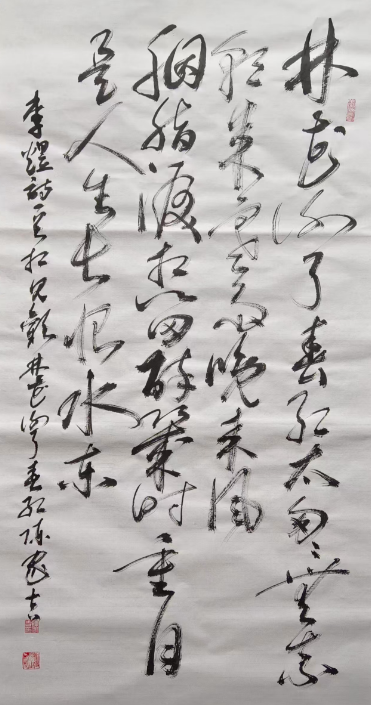 林花谢了春红太匆匆无奈
朝来寒雨晚来风
胭脂淚相留醉幾时重自
是人生长恨水东
李煜詩相见歡林花谢了春红陈家